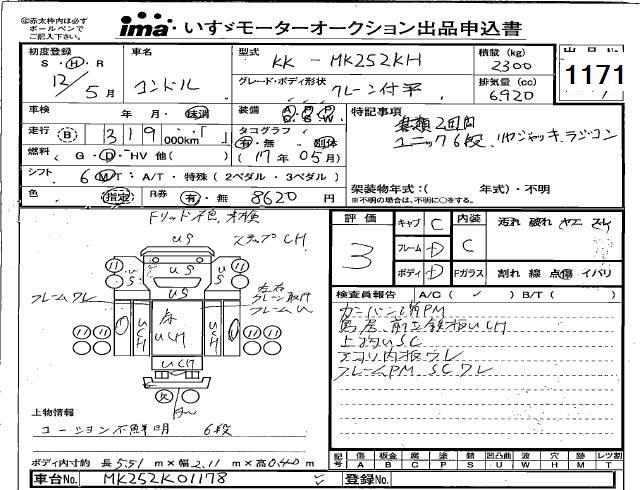 ㊟赤太枠内は必ず
ボールペンで
ご記入下さい。
ima いすゞモーターオークション出品申込書
初度登録 S・H・R 12/5月
車名 コンドル
型式 KK - MK252KH
グレード・ボディ形状 クレーン付平
積載 (kg) 2300
排気量 (cc) 6.920
出品No.
1171
車検 年・月・抹消
走行 B 319 000km
燃料 G・D・HV 他( )
シフト 6 MT・A/T・特殊(2ペダル・3ペダル)
色 指定 R券 有・無 8620 円
装備 A/C P/S P/W
タコグラフ 有・無 別体
(17年05月)
特記事項
書類2週間
ユニック6段、リヤジャッキ、ラジコン
架装物年式:( 年式)・不明
※不明の場合は、不明に○をする。
US
ステップCH
US
US
US
US
フレームワレ
左右
クレーン取付
フレームU
UCH
UCH
UCH
UCH
上物情報
コーション不鮮明 6段
ボディ内寸約 長5.51m×幅2.11m×高0.40m
車台No. MK252K01178
登録No.
評価 3
キャブ C
フレーム D
ボディ D
内装 C
Fガラス
汚れ 破れ ヤニ スレ
割れ 線 点 傷 イバリ
検査員報告 A/C( ✓ ) B/T( )
カンバン消PM
鳥居、前立鉄板UCH
上物USC
アオリ内板ワレ
フレームPM SCワレ
記号 傷A 板金B 腐C 塗P 錆S 凹凸曲U 波W 穴H 跡M レンズ割T